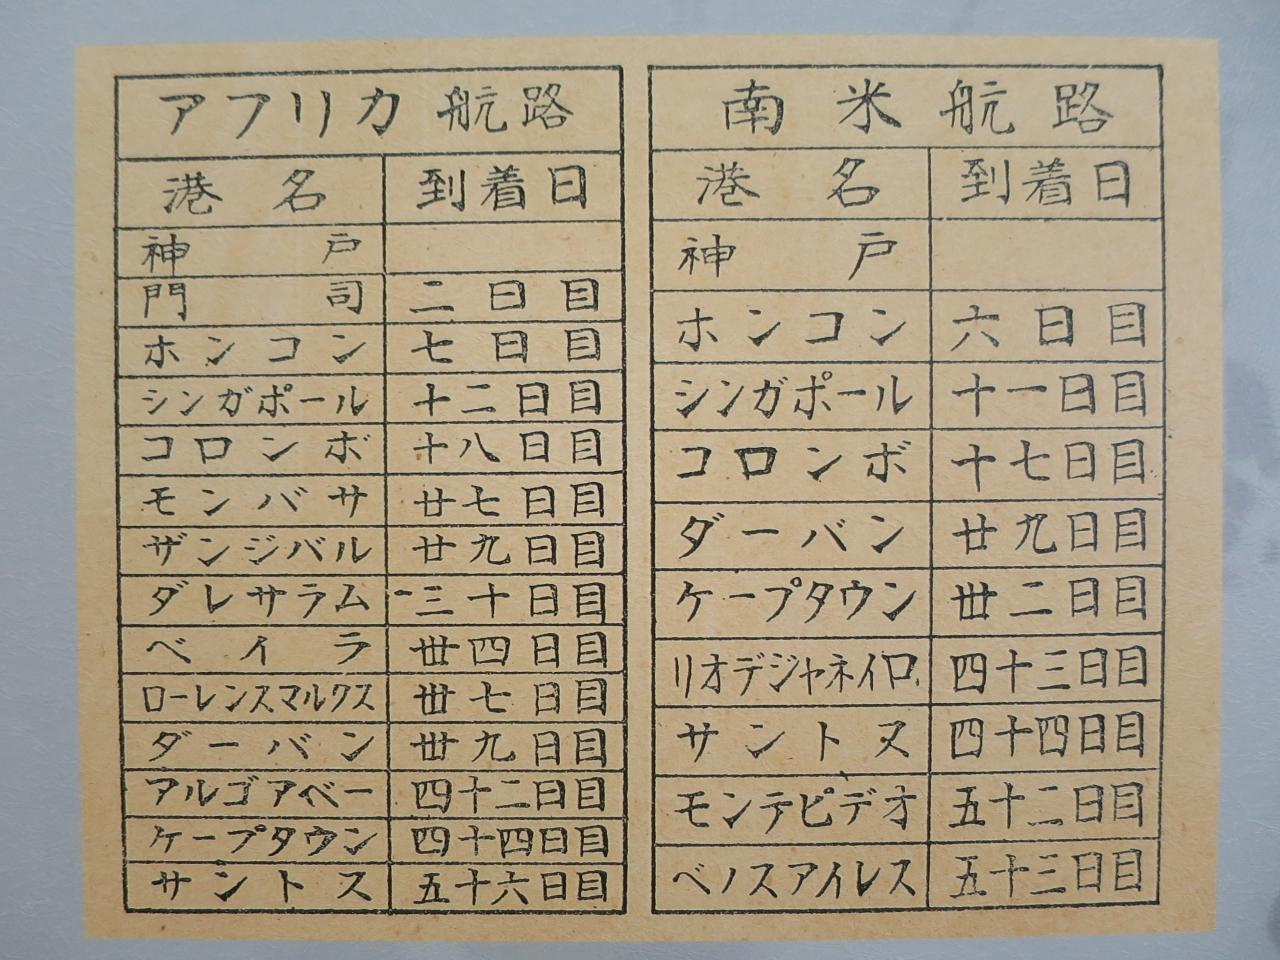 アフリカ航路
港名 到着日
神戸
門司 二日目
ホンコン 七日目
シンガポール 十二日目
コロンボ 十八日目
モンバサ 廿七日目
ザンジバル 廿九日目
ダレサラム 三十日目
ベイラ 丗四日目
ローレンスマルクス 丗七日目
ダーバン 丗九日目
アルゴアベー 四十二日目
ケープタウン 四十四日目
サントス 五十六日目
南米航路
港名 到着日
神戸
ホンコン 六日目
シンガポール 十一日目
コロンボ 十七日目
ダーバン 廿九日目
ケープタウン 丗二日目
リオデジャネイロ 四十三日目
サントス 四十四日目
モンテビデオ 五十二日目
ベノスアイレス 五十三日目